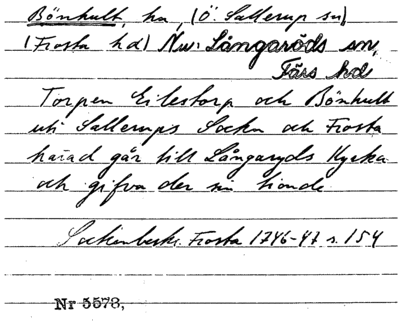 Bönhult, ha, (Ö. Sallerup sn)
(Frosta hd) Nu: Långaröds sn,
Färs hd
Torpen Eilestorp och Bönhult
uti Sallerups Sockn och Frosta
härad går till Långaryds Kyrka
och gifva der sin tionde
Sockenbeskr. Frosta 1746-47 s. 154
Nr 5578,